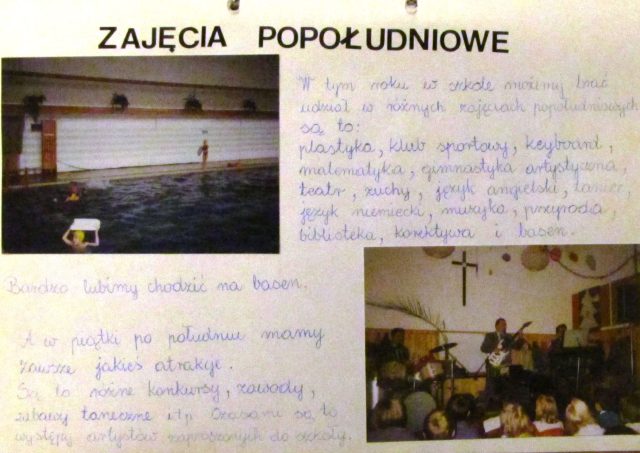 ZAJĘCIA POPOŁUDNIOWE
W tym roku w szkole możemy brać
udział w różnych zajęciach popołudniowych
są to:
plastyka, klub sportowy, keyboard,
matematyka, gimnastyka artystyczna,
teatr, zuchy, język angielski, taniec,
język niemiecki, muzyka, przyroda,
biblioteka, korektywa i basen.
Bardzo lubimy chodzić na basen.
A w piątki po południu mamy
zawsze jakieś atrakcje.
Są to różne konkursy, zawody,
zabawy taneczne itp. Czasami są to
występy artystów zaproszonych do szkoły.